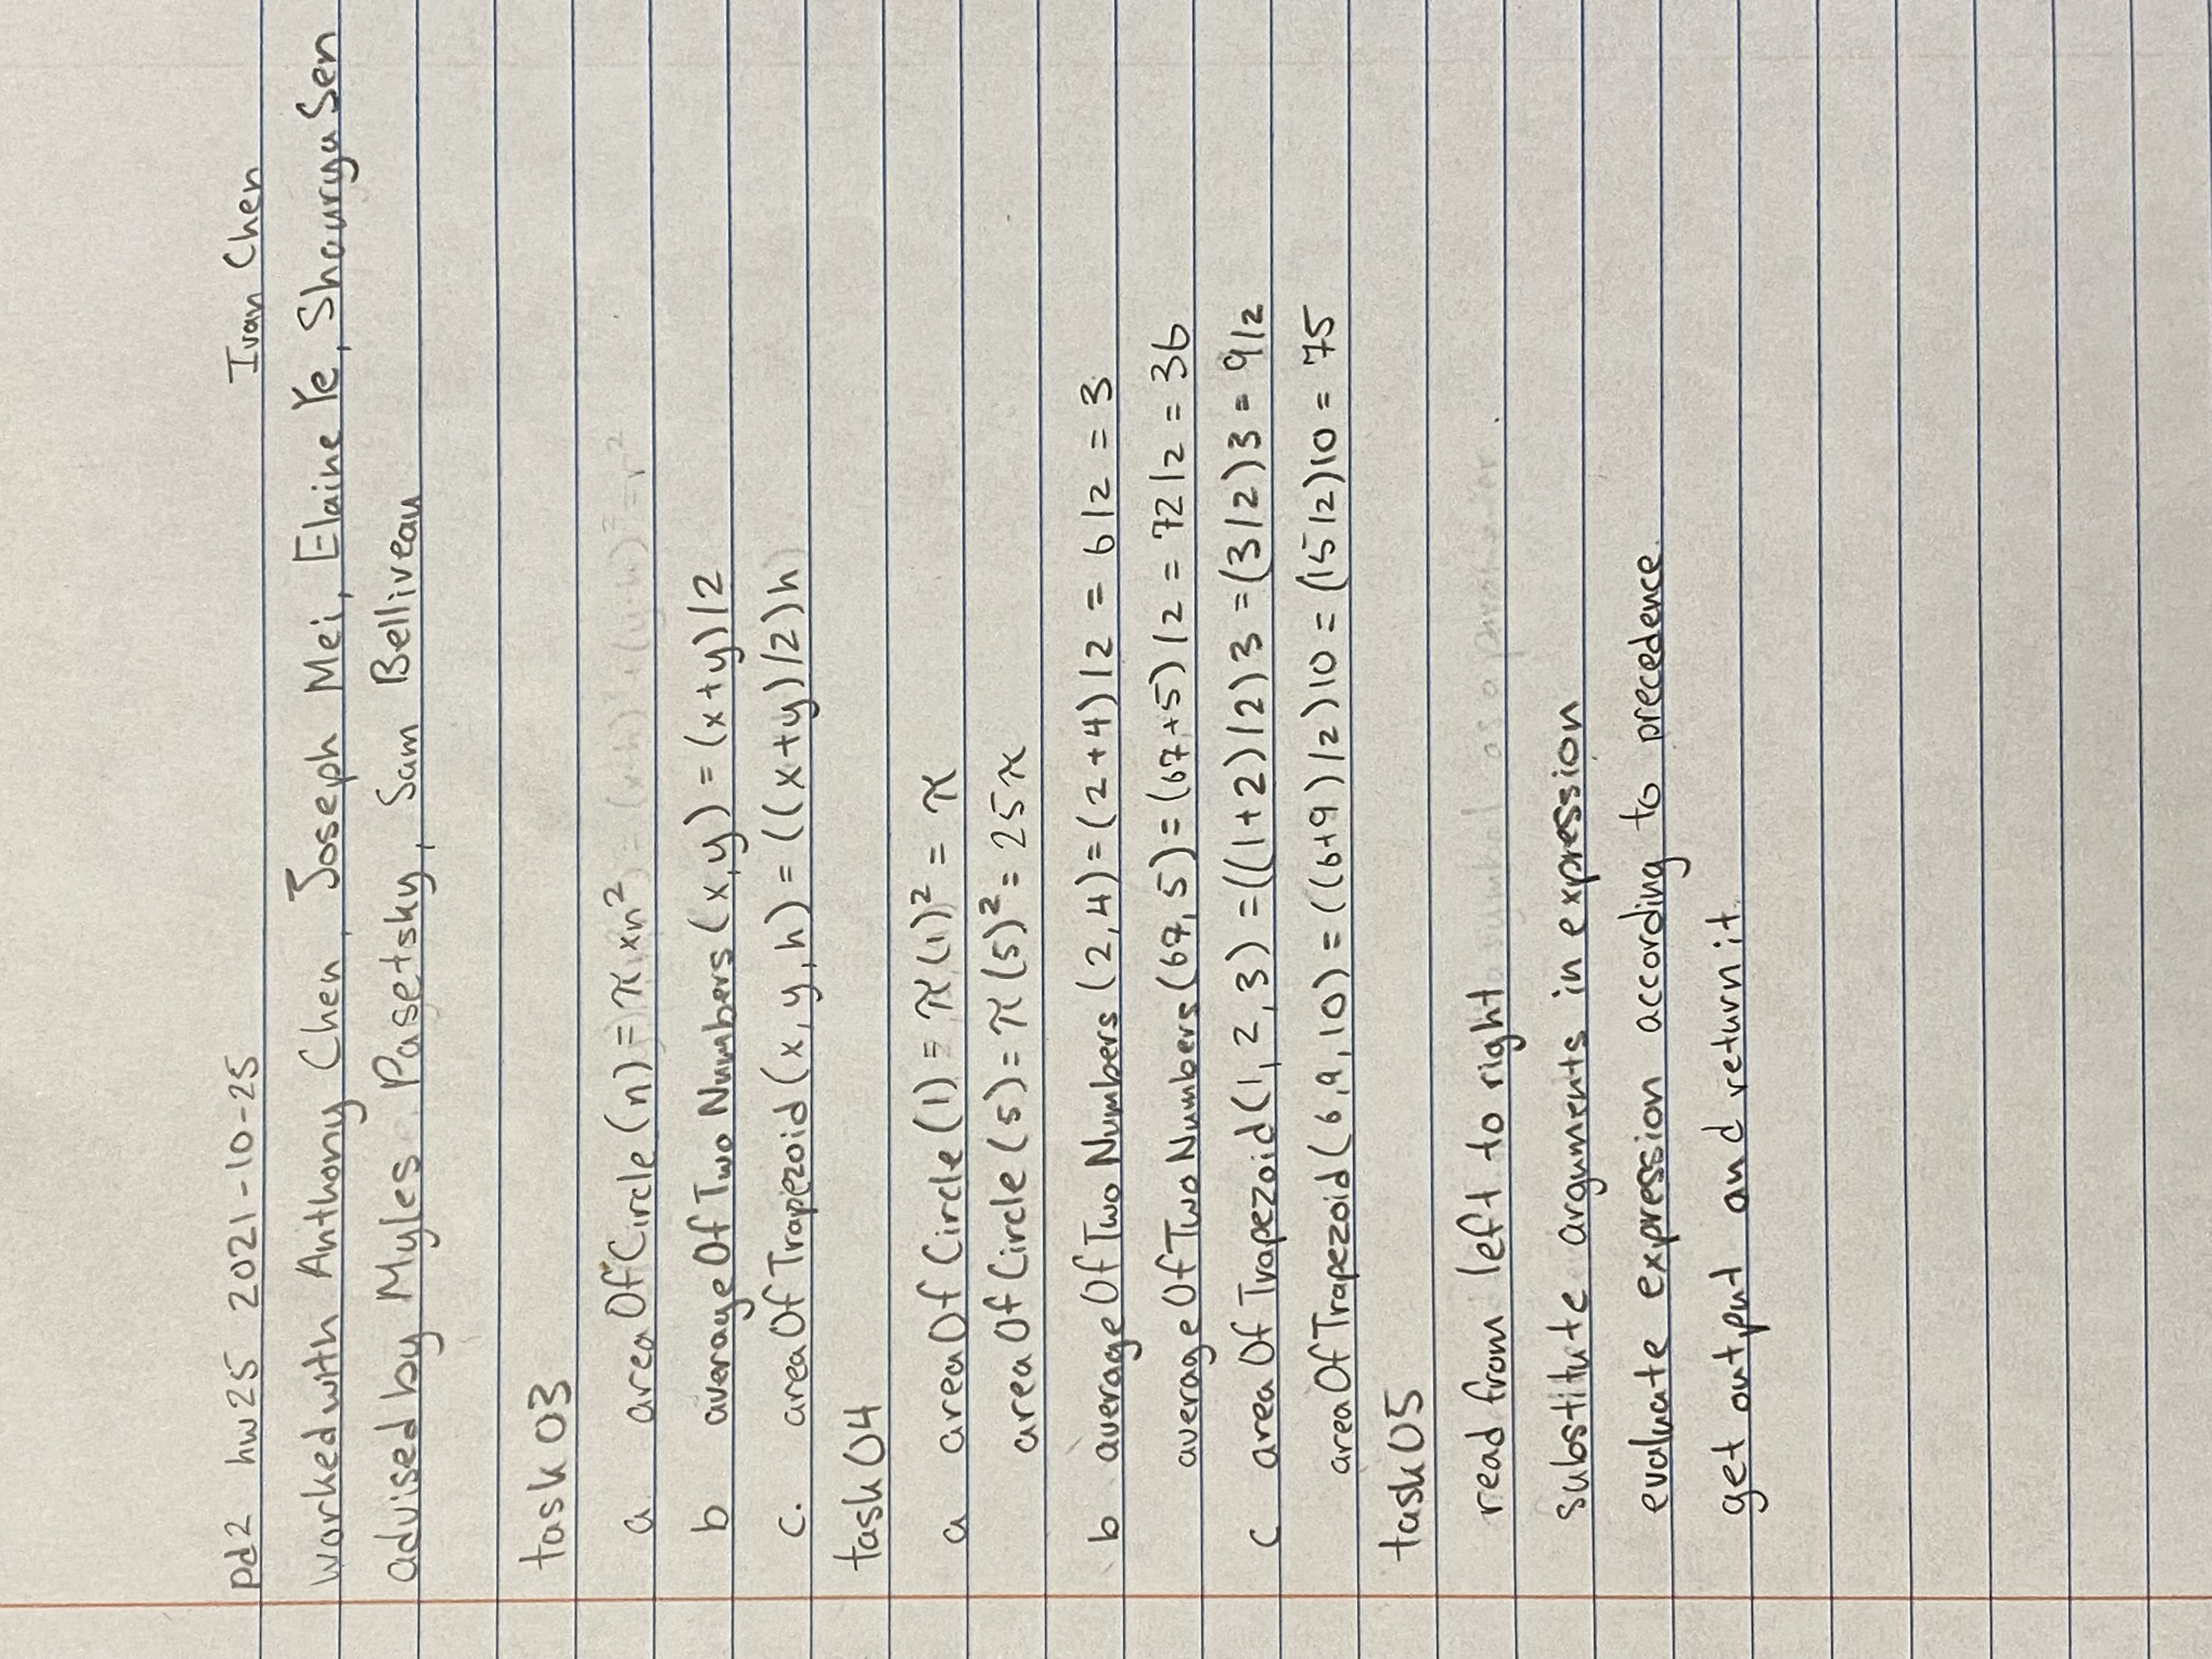 pd2 hw25 2021-10-25 Ivan Chen
worked with Anthony Chen, Joseph Mei, Elaine Ye, Shourya Sen
advised by Myles Pasetsky, Sam Belliveau
task 03
a areaOfCircle (n) = π xn²
b averageOfTwoNumbers (x,y) = (x+y)/2
c. areaOfTrapezoid (x, y, h) = ((x+y)/2)h
task 04
a areaOfCircle (1) = π(1)² = π
areaOfCircle (5) = π(5)² = 25π
b averageOfTwoNumbers (2,4) = (2+4)/2 = 6/2 = 3
averageOfTwoNumbers (67,5) = (67+5)/2 = 72/2 = 36
c areaOfTrapezoid (1, 2, 3) = ((1+2)/2)3 = (3/2)3 = 9/2
areaOfTrapezoid (6,9,10) = ((6+9)/2)10 = (15/2)10 = 75
task 05
read from left to right
substitute arguments in expression
evaluate expression according to precedence.
get output and return it.